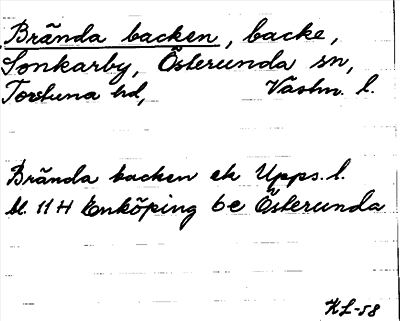 Brända backen, backe,
Sonkarby, Österunda sn,
Torstuna hd, Västm. l.
Brända backen ek Upps. l.
bl. 11 H Enköping 6e Österunda
KL-58